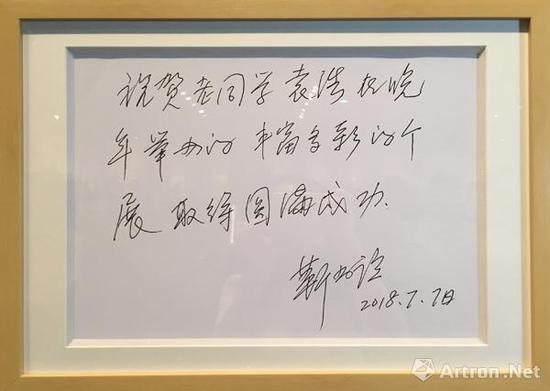 祝贺老同学袁浩于晚
年举办的丰富多彩的个
展取得圆满成功.
靳尚谊
2018.7.7日
Artron.Net